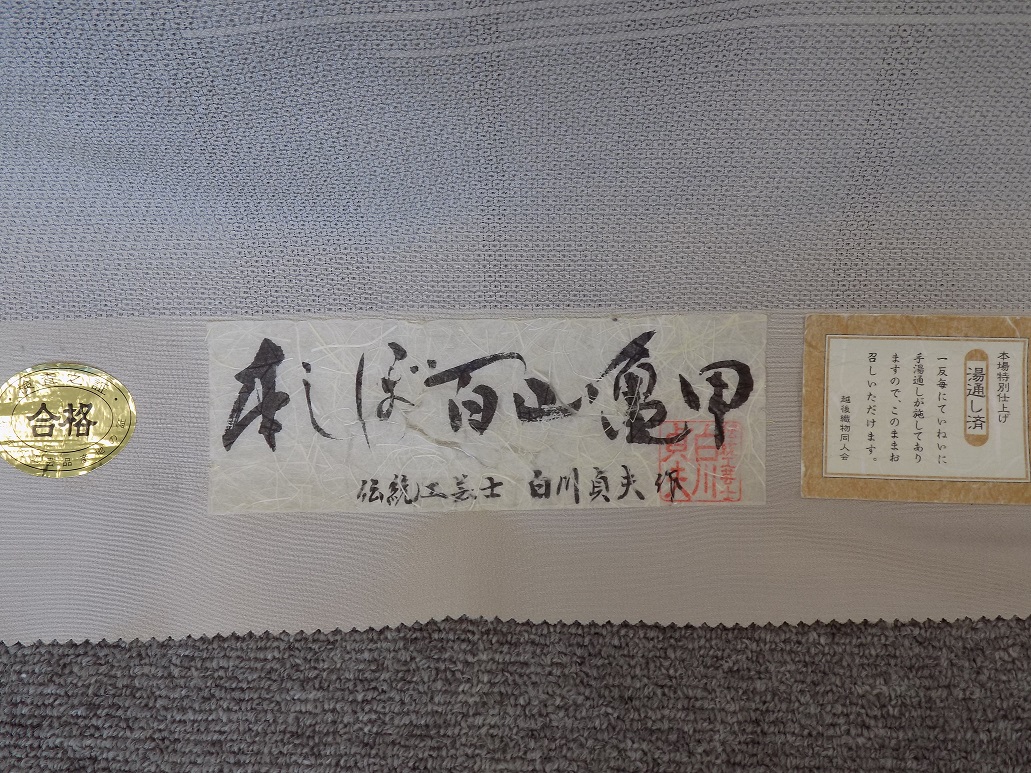 合格
本しぼ百山亀甲
伝統工芸士 白川貞夫 作
白川
貞夫
本場特別仕上げ
湯通し済
一反毎にていねいに
手湯通しが施してあり
ますので、このままお
召しいただけます。
越後織物同人会